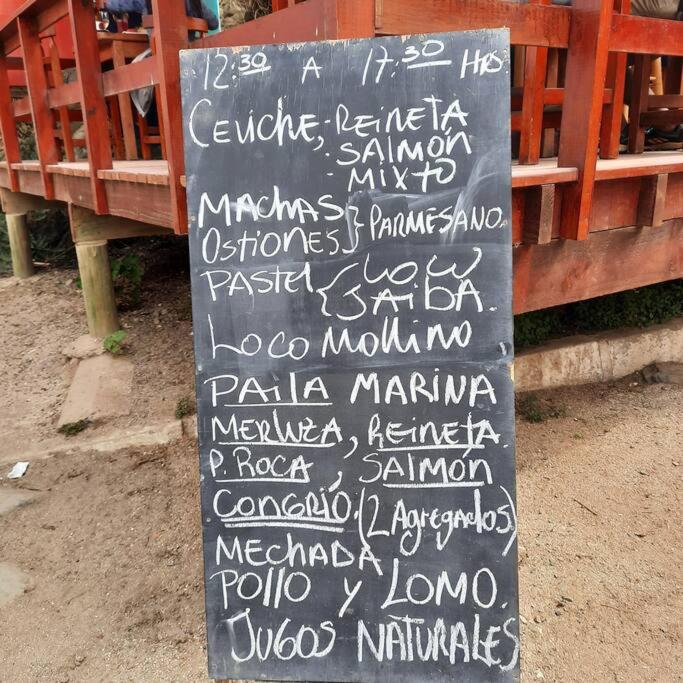 12:30 A 17:30 HRS
CEVICHE, - REINETA
- SALMÓN
- MIXTO
MACHAS } PARMESANO.
OSTIONES
PASTEL { LOCO
JAIBA.
LOCO MOLLINO
PAILA MARINA
MERLUZA, REINETA.
P. ROCA, SALMÓN
CONGRIO. (2 Agregados)
MECHADA
POLLO y LOMO.
JUGOS NATURALES